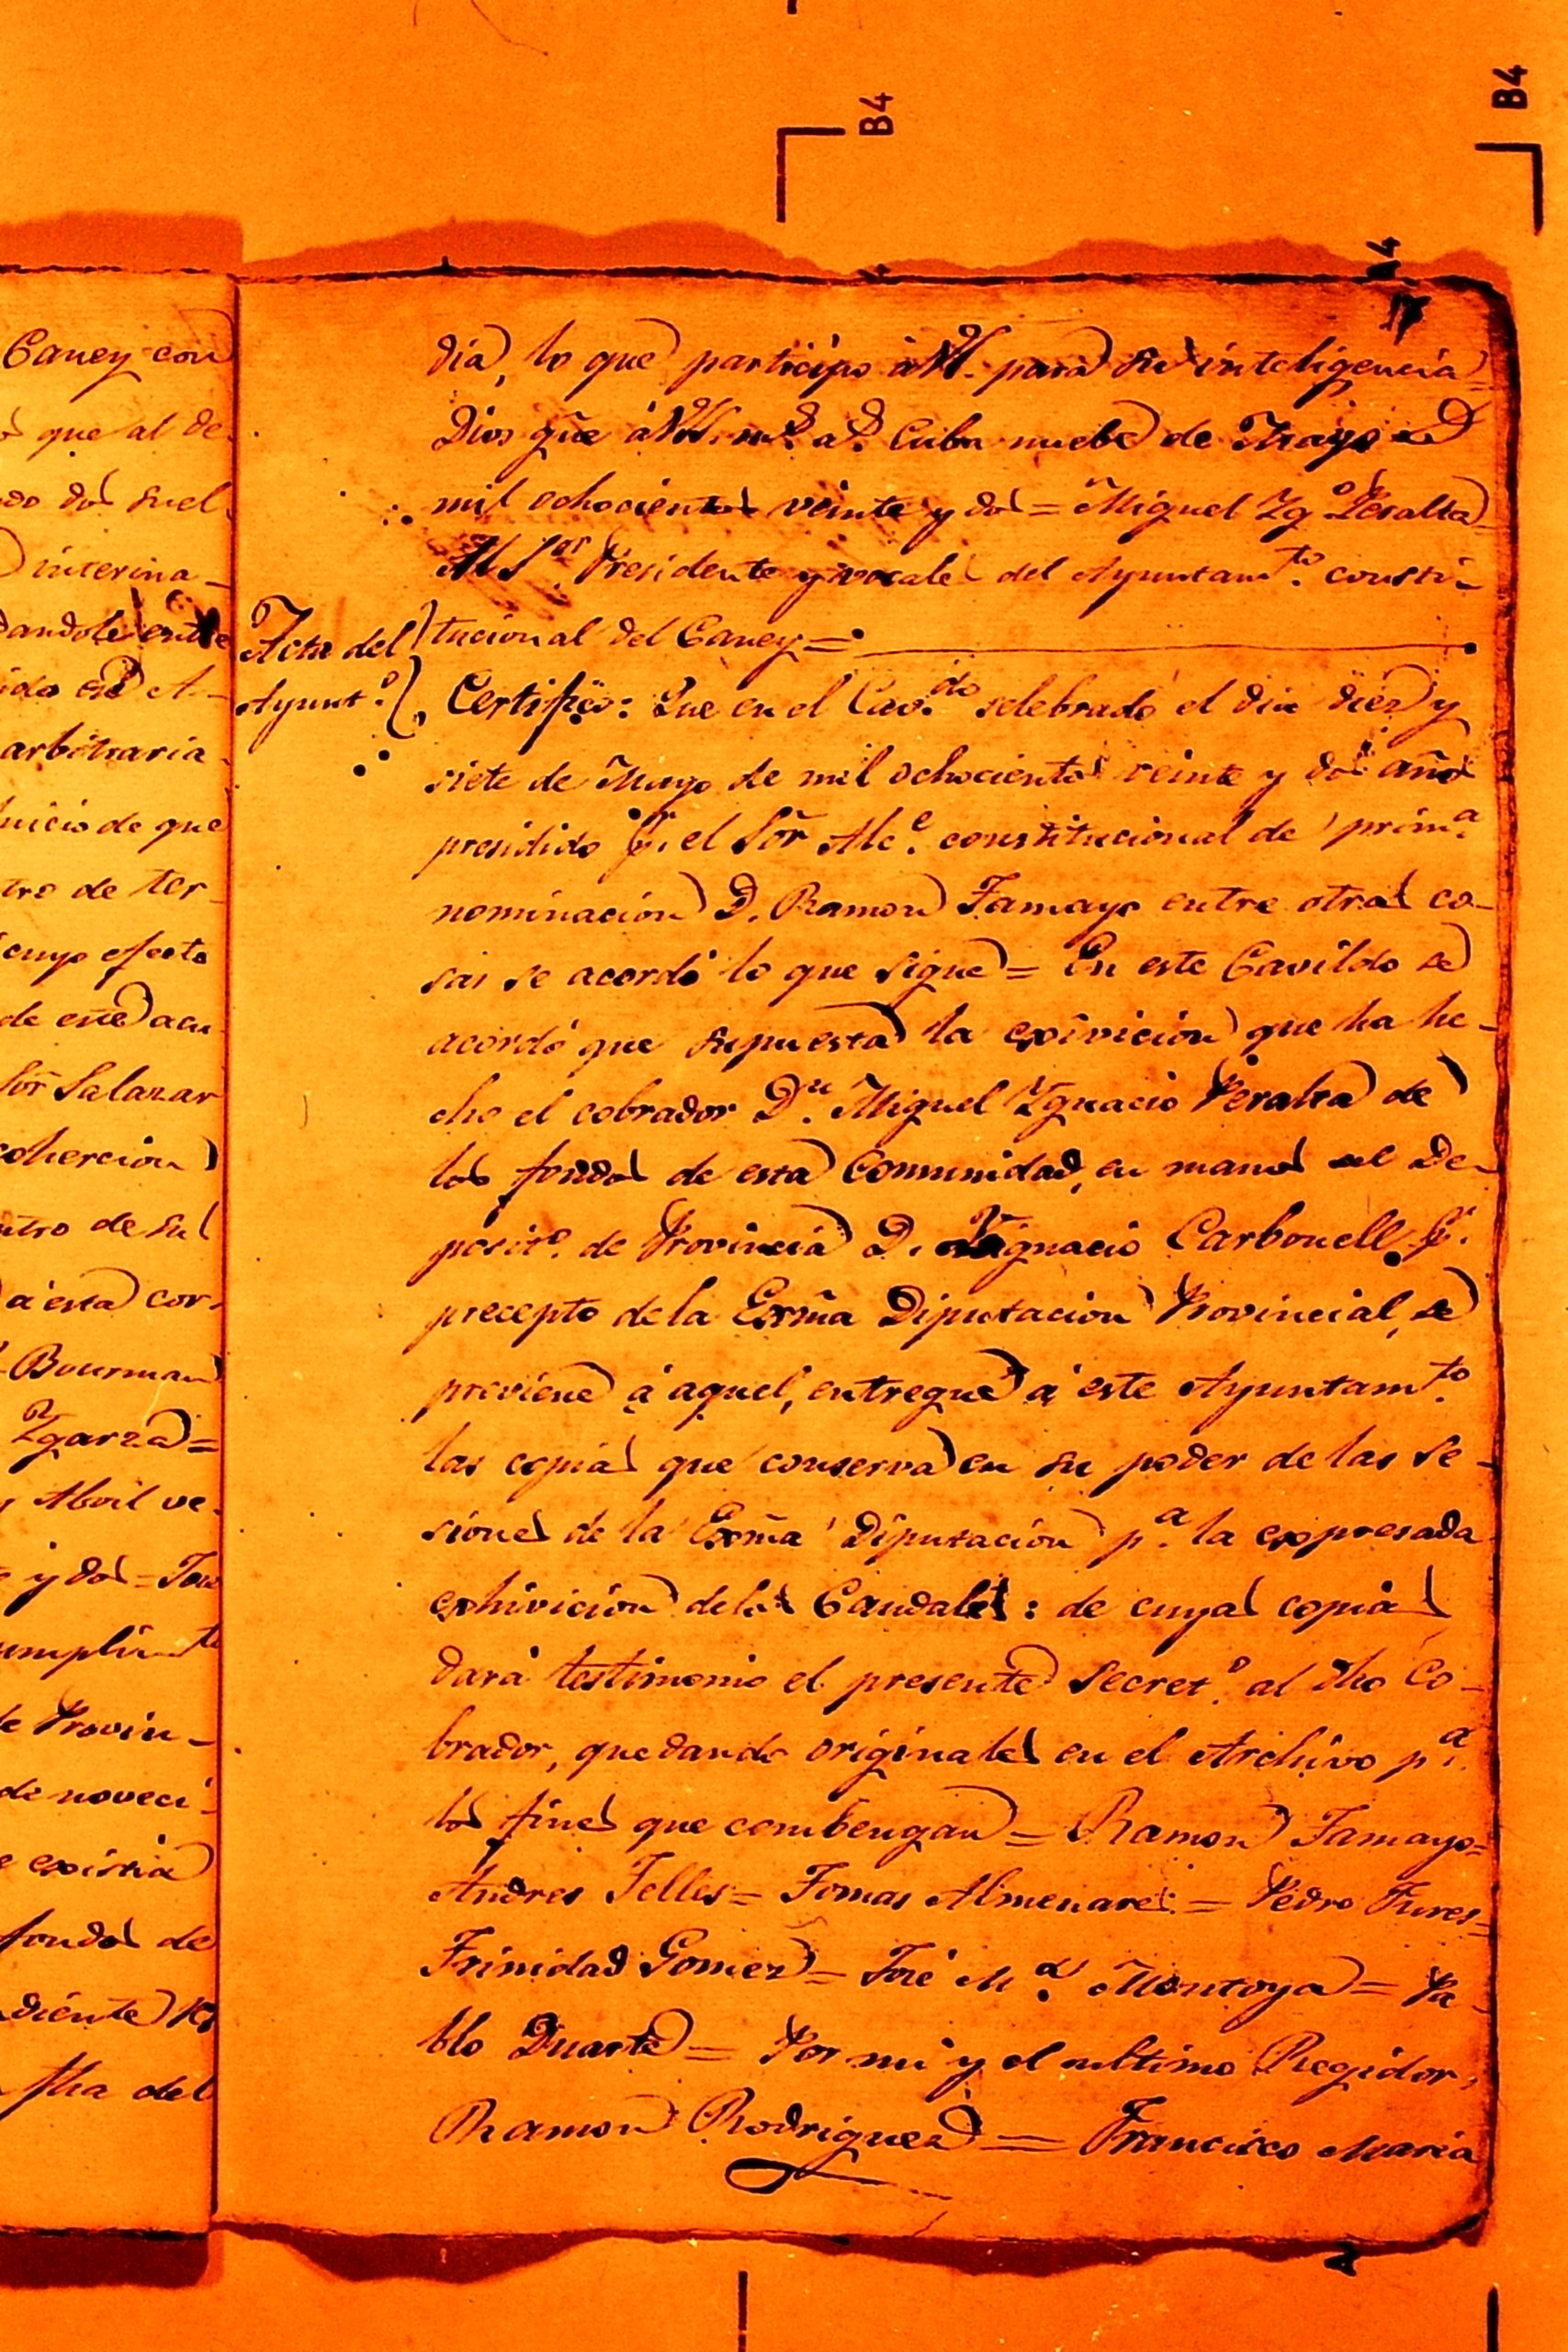 B4
B4
A4
17
Caney con
que al de-
do dos suel
interina-
dandole entre
ida en A-
arbitraria
nicio de que
tro de ter-
cuyo efecto
de este acu-
Sõr Salazar
cohercion
ntro de sus
a esta cor-
Bourman
Ygarza=
Abril ve-
y dos = Jose
umplim.to
de Provin-
de noveci-
e existia
fondos de
diente
fha del
dia, lo que participo à VV. para su inteligencia=
Dios gũe à VV. m.s a.s Cuba nuebe de Mayo de
mil ochocientos veinte y dos = Miguel Yg.o Peralta
Al S.or Presidente y vocales del Ayuntam.to consti-
tucional del Caney=
Acta del
Ayunt.o
Certifico: Que en el Cav.do selebrado el dia diez y
siete de Mayo de mil ochocientos veinte y dos años
presidido p.r el Sõr Alc.e constitucional de prim.a
nominacion D. Ramon Tamayo entre otras co-
sas se acordó lo que sigue = En este Cavildo se
acordó que supuesta la exivicion que ha he-
cho el cobrador D.n Miguel Ygnacio Peralta de
los fondos de esta Comunidad, en manos del De-
posit.o de Provincia D. Ygnacio Carbonell p.r
precepto de la Exm̃a Diputacion Provincial, se
previene á aquel, entregue á este Ayuntam.to
las copias que conserva en su poder de las se-
siones de la Exm̃a Diputacion p.a la expresada
exhivicion de los Caudales: de cuyas copias
dará testimonio el presente Secret.o al dho Co-
brador, quedando originales en el Archivo p.a
los fines que combengan = Ramon Tamayo=
Andres Telles= Tomas Almenares = Pedro Tures=
Trinidad Gomez= José M.a Montoya = Pa-
blo Duarte = Por mi y el ultimo Regidor,
Ramon Rodriguez = Francisco Maria